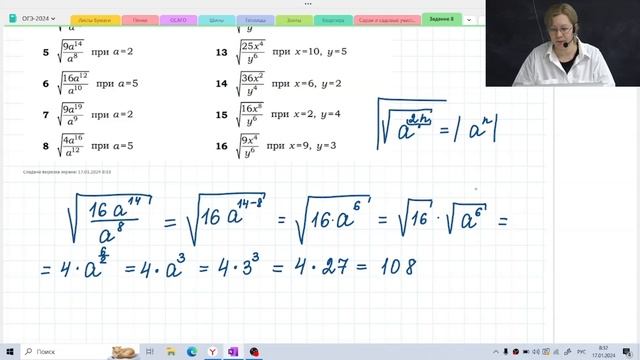 ОГЭ-2024
Листы бумаги
ОСАГО
Шины
Теплицы
Зонты
Квартира
Задание 8
5 √(9a¹⁴/a⁸) при a=2
6 √(16a¹²/a¹⁰) при a=5
7 √(9a¹⁹/a⁹) при a=2
8 √(4a¹⁶/a¹²) при a=5
13 √(25x⁴/y⁶) при x=10, y=5
14 √(36x²/y⁴) при x=6, y=2
15 √(16x⁸/y⁶) при x=2, y=4
16 √(9x⁴/y⁶) при x=9, y=3
√(a²ⁿ) = |aⁿ|
Создано вырезка экрана: 17.01.2024 8:33
√(16a¹⁴/a⁸) = √(16a¹⁴⁻⁸) = √(16·a⁶) = √16 · √a⁶ =
= 4·a^(6/2) = 4·a³ = 4·3³ = 4·27 = 108
Поиск
РУС
8:37
17.01.2024